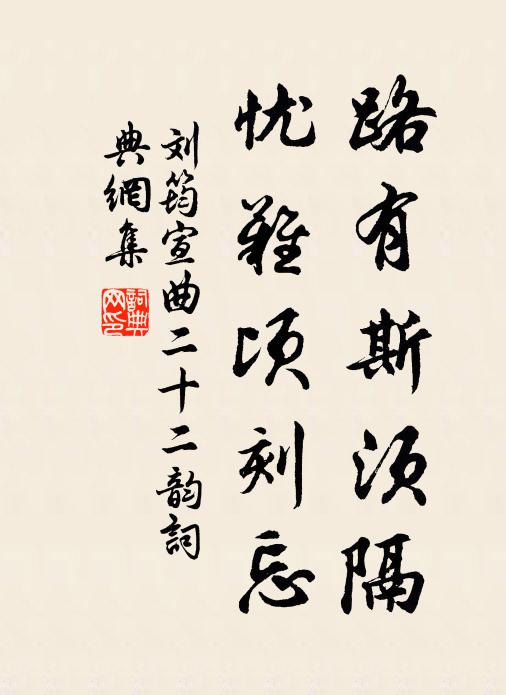 路有斯须隔
忧难顷刻忘
刘筠宣曲二十二韵詞
典網集
詞典
网印